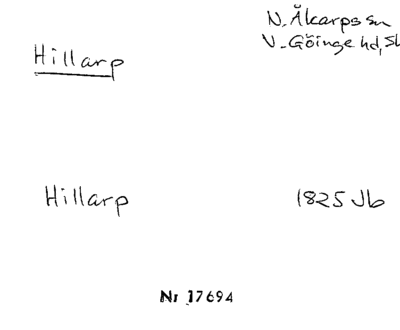 N. Åkarps sn
Hillarp
V. Göinge hd, Sk
Hillarp 1825 Jb
Nr 17694